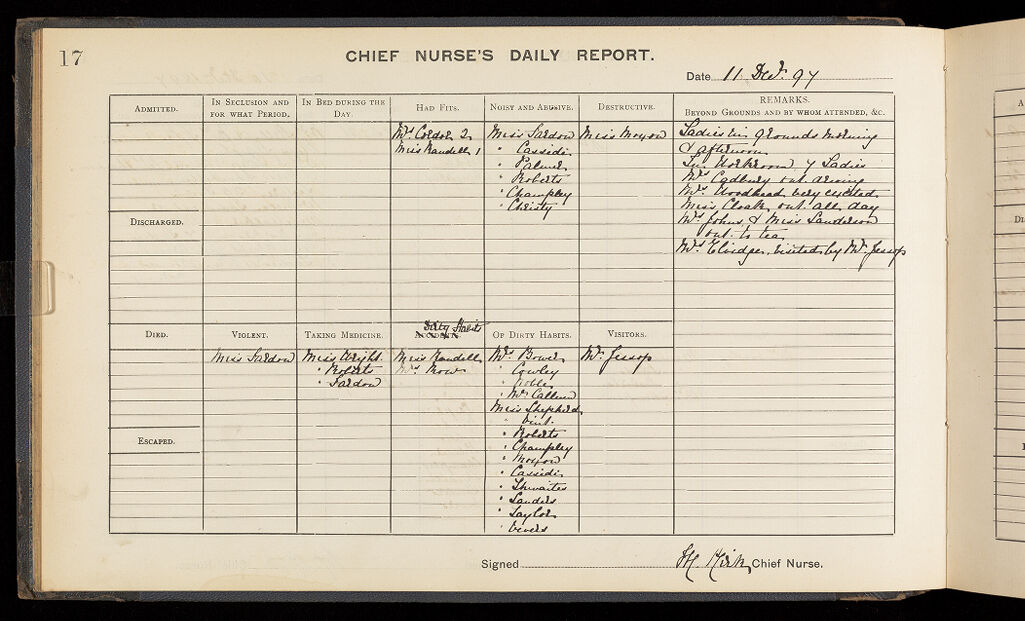 17
CHIEF NURSE'S DAILY REPORT.
Date 11 Decr. 97
ADMITTED.
IN SECLUSION AND
FOR WHAT PERIOD.
IN BED DURING THE
DAY.
HAD FITS.
Mrs Cordon 2
Miss Randell 1
NOISY AND ABUSIVE.
Miss Sardon
" Cassidi
" Palmer
" Roberts
" Champley
" Christy
DESTRUCTIVE.
Miss Moxon
REMARKS.
BEYOND GROUNDS AND BY WHOM ATTENDED, &C.
Ladies in grounds morning
& afternoon
In Workroom 7 Ladies
Mrs Cadbury out driving
Mrs Woodhead very excited
Miss Cloak out all day
Mrs Johns & Miss Sanderson
out to tea
Mrs Elvidge, visited by Mr Jessop
DISCHARGED.
DIED.
VIOLENT.
Miss Sardon
TAKING MEDICINE.
Miss Wright
" Roberts
" Sardon
Dirty Habits
ACCIDENT.
Miss Randell
Mrs Row
OF DIRTY HABITS.
Mrs Bower
" Cowley
" Noble
" McCallum
Miss Shepherd
" Vint
" Roberts
" Champley
" Moxon
" Cassidi
" Thwaites
" Sanders
" Taylor
" Vevers
VISITORS.
Mr Jessop
ESCAPED.
Signed H Kirk Chief Nurse.